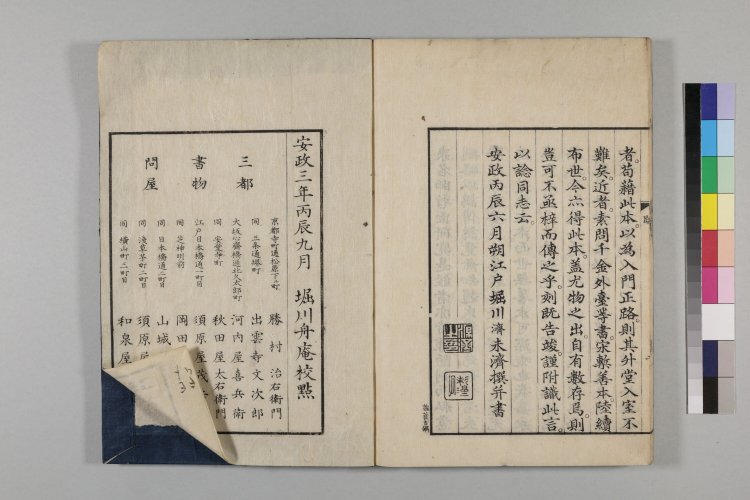 者。苟藉此本。以為入門正路。則其外堂入室不
難矣。近者。素問千金外臺等書。宋槧善本陸續
布世。今亦得此本。蓋尤物之出自有數存焉。則
豈可不亟梓而傳之乎。刻既告竣。謹附識此言。
以諗同志云
安政丙辰六月朔江戸堀川濟未濟撰并書
安政三年丙辰九月 堀川舟庵校點
三都
書物
問屋
京都寺町通松原下ル町 勝村治右衛門
同 三条通堺町 出雲寺文次郎
大坂心斎橋通北久太郎町 河内屋喜兵衛
同 安堂寺町 秋田屋太右衛門
江戸日本橋通一町目 須原屋茂
同 芝神明前 岡田
同 日本橋通二町目 山城
同 浅草茅町二町目 須原屋
同 横山町三町目 和泉屋